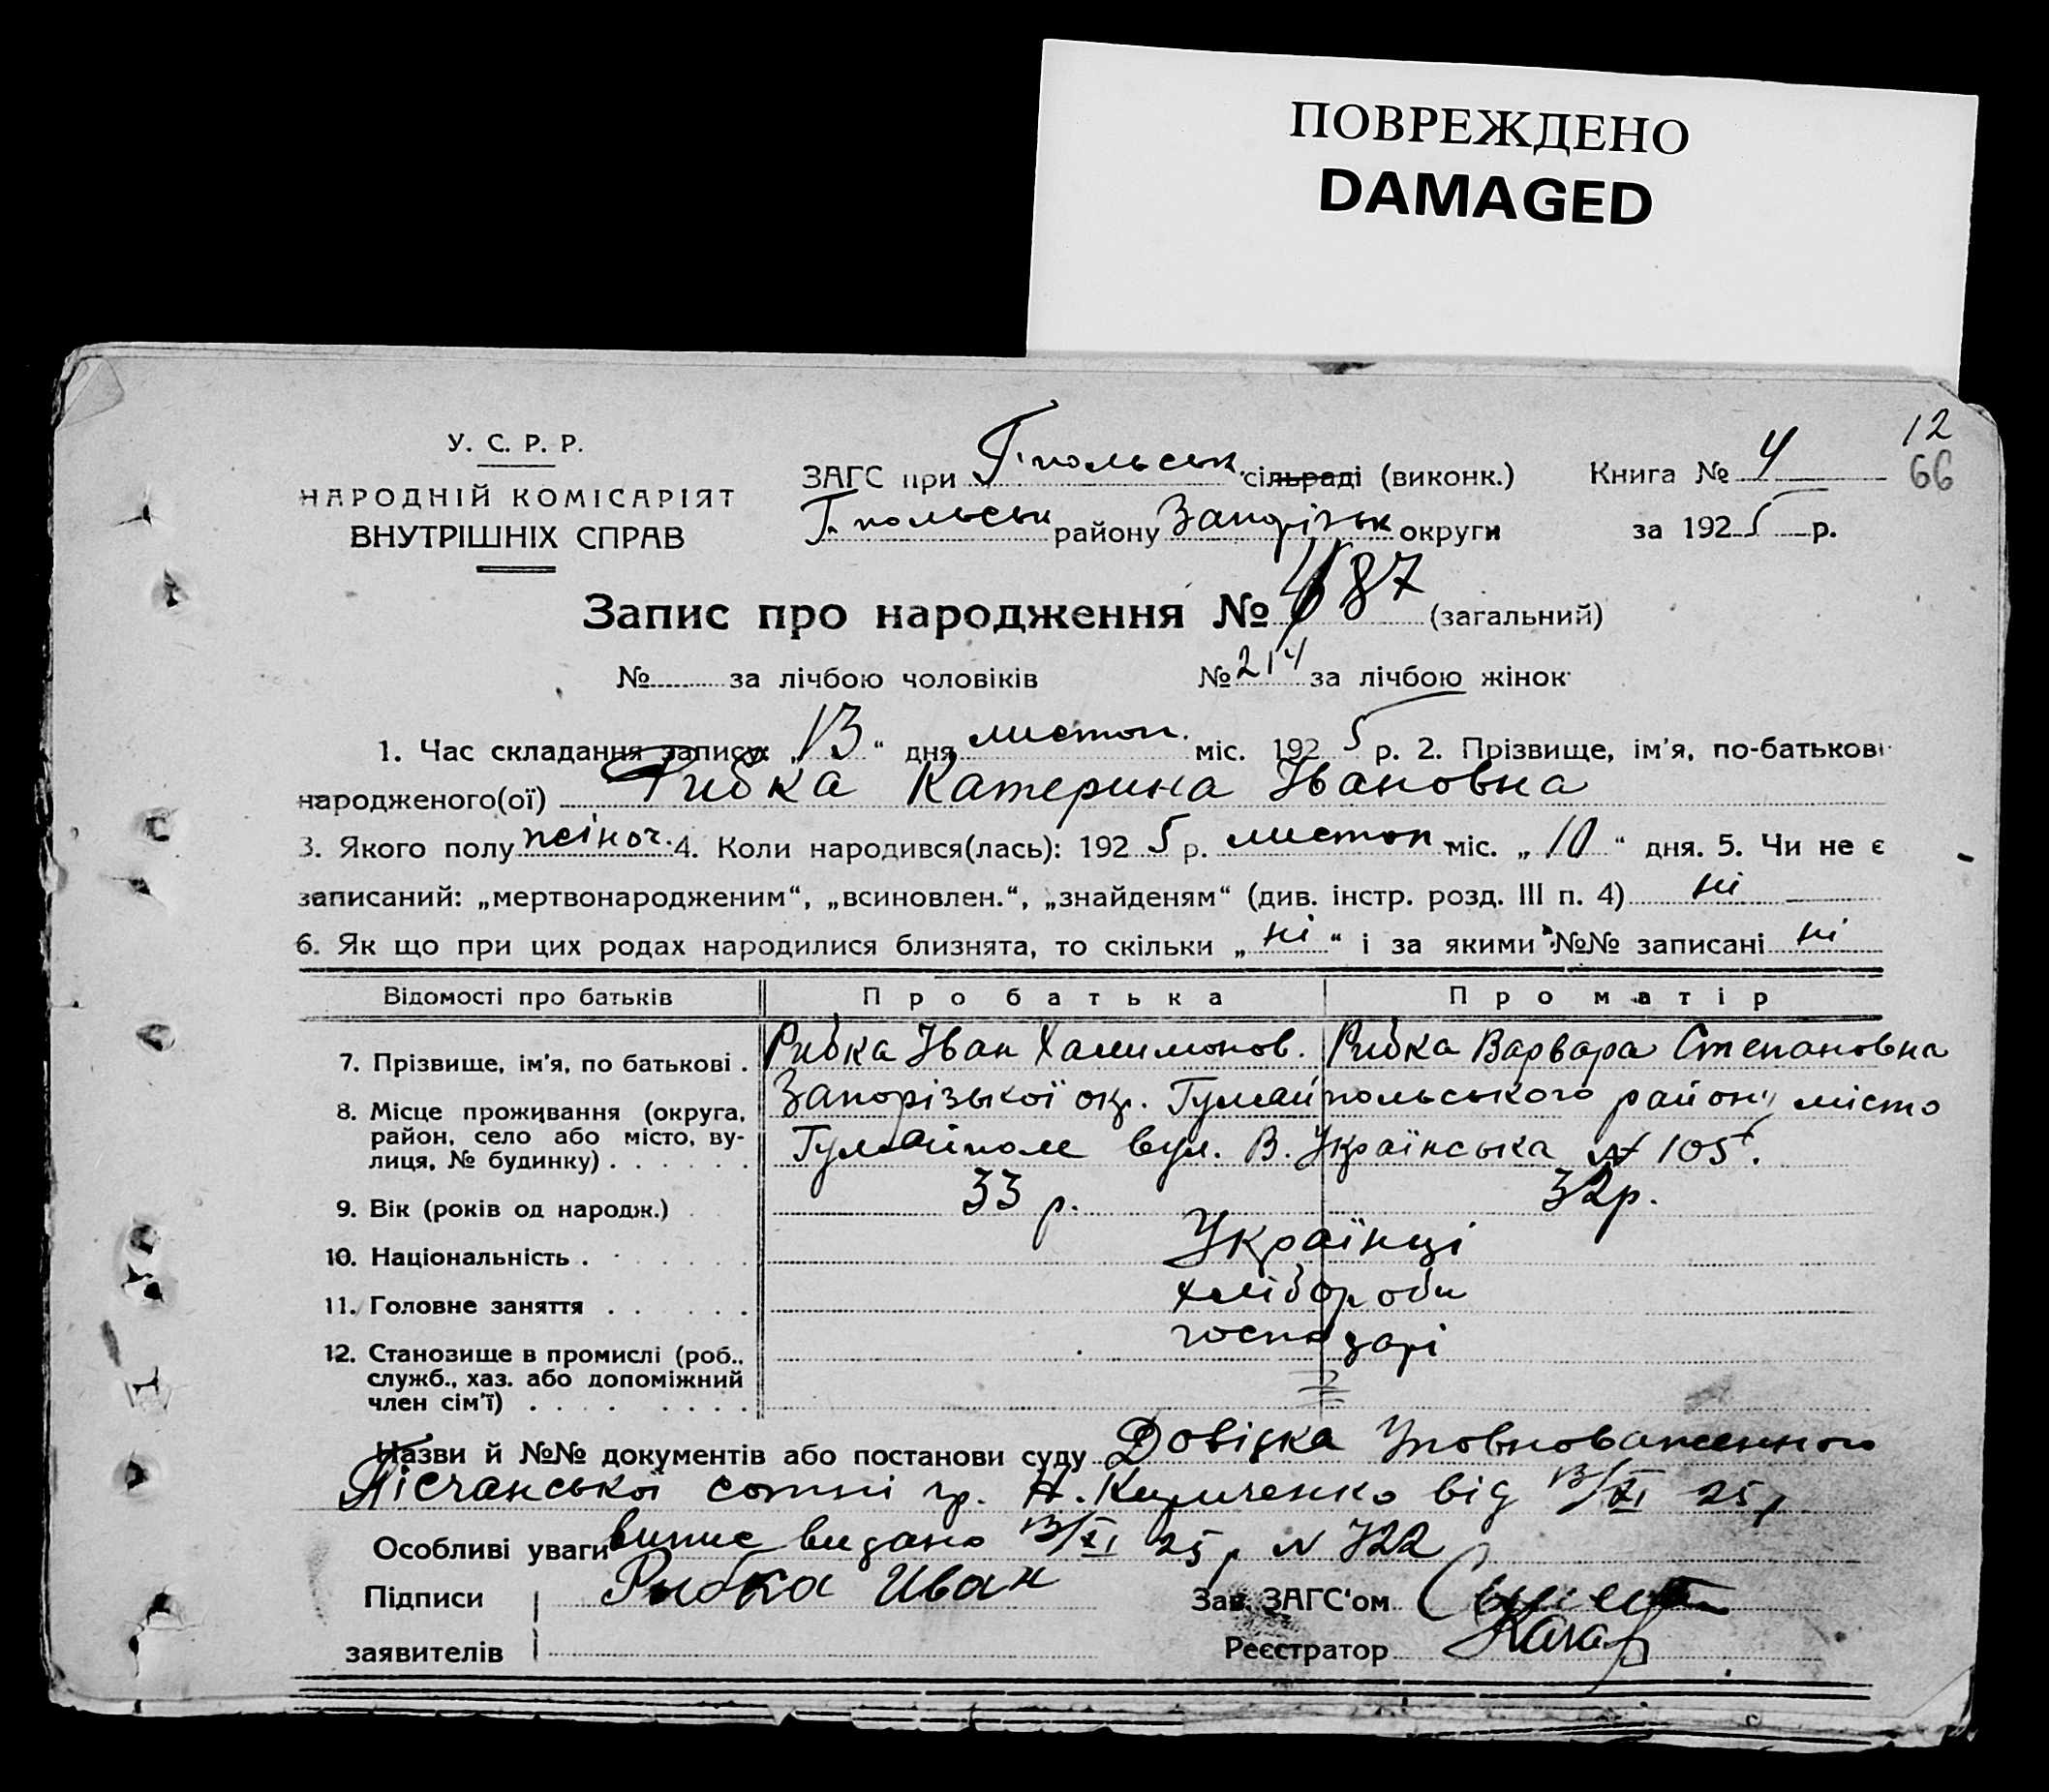 ПОВРЕЖДЕНО
DAMAGED
12
66
У. С. Р. Р.
НАРОДНІЙ КОМІСАРІЯТ
ВНУТРІШНІХ СПРАВ
ЗАГС при Г.польськ. сільраді (виконк.)
Г.польськ району Запорізьк округи
Книга № 4
за 1925 р.
Запис про народження № 487 (загальний)
№ за лічбою чоловіків № 214 за лічбою жінок
1. Час складання запису: „13“ дня листоп. міс. 1925 р. 2. Прізвище, ім'я, по-батькові
народженого(ої) Рибка Катерина Івановна
3. Якого полу жіноч. 4. Коли народився(лась): 1925 р. листоп. міс. „10“ дня. 5. Чи не є
записаний: „мертвонародженим“, „всиновлен.“, „знайденям“ (див. інстр. розд. III п. 4) ні
6. Як що при цих родах народилися близнята, то скільки „ні“ і за якими №№ записані ні
Відомості про батьків Про батька Про матір
7. Прізвище, ім'я, по батькові . Рибка Іван Халимонов. Рибка Варвара Степановна
8. Місце проживання (округа, район, село або місто, вулиця, № будинку) . . . . . . Запорізької окр. Гуляйпольського району місто
Гуляйполе вул. В. Українська № 105.
9. Вік (років од народж.) 33 р. 32 р.
10. Національність . Українці
11. Головне заняття . . . . . . хлібороби
12. Становище в промислі (роб., служб., хаз. або допоміжний член сім'ї) . . . . . . . . господарі
Назви й №№ документів або постанови суду Довідка Уповноваженного
Пісчанської сотні гр. Кириченко від 13/XI 25 р
Особливі уваги випис видано 13/XI 25 р N 722
Підписи Рибка Иван Зав. ЗАГС'ом
заявителів Реєстратор